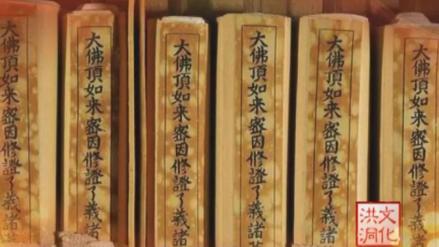 大佛頂如来密因修證了義諸
大佛頂如来密因修證了義諸
大佛頂如来密因修證了義諸
大佛頂如来密因修證了義諸
大佛頂如来密因修證了義諸
大佛頂如来密因修證了義
洪洞
文化